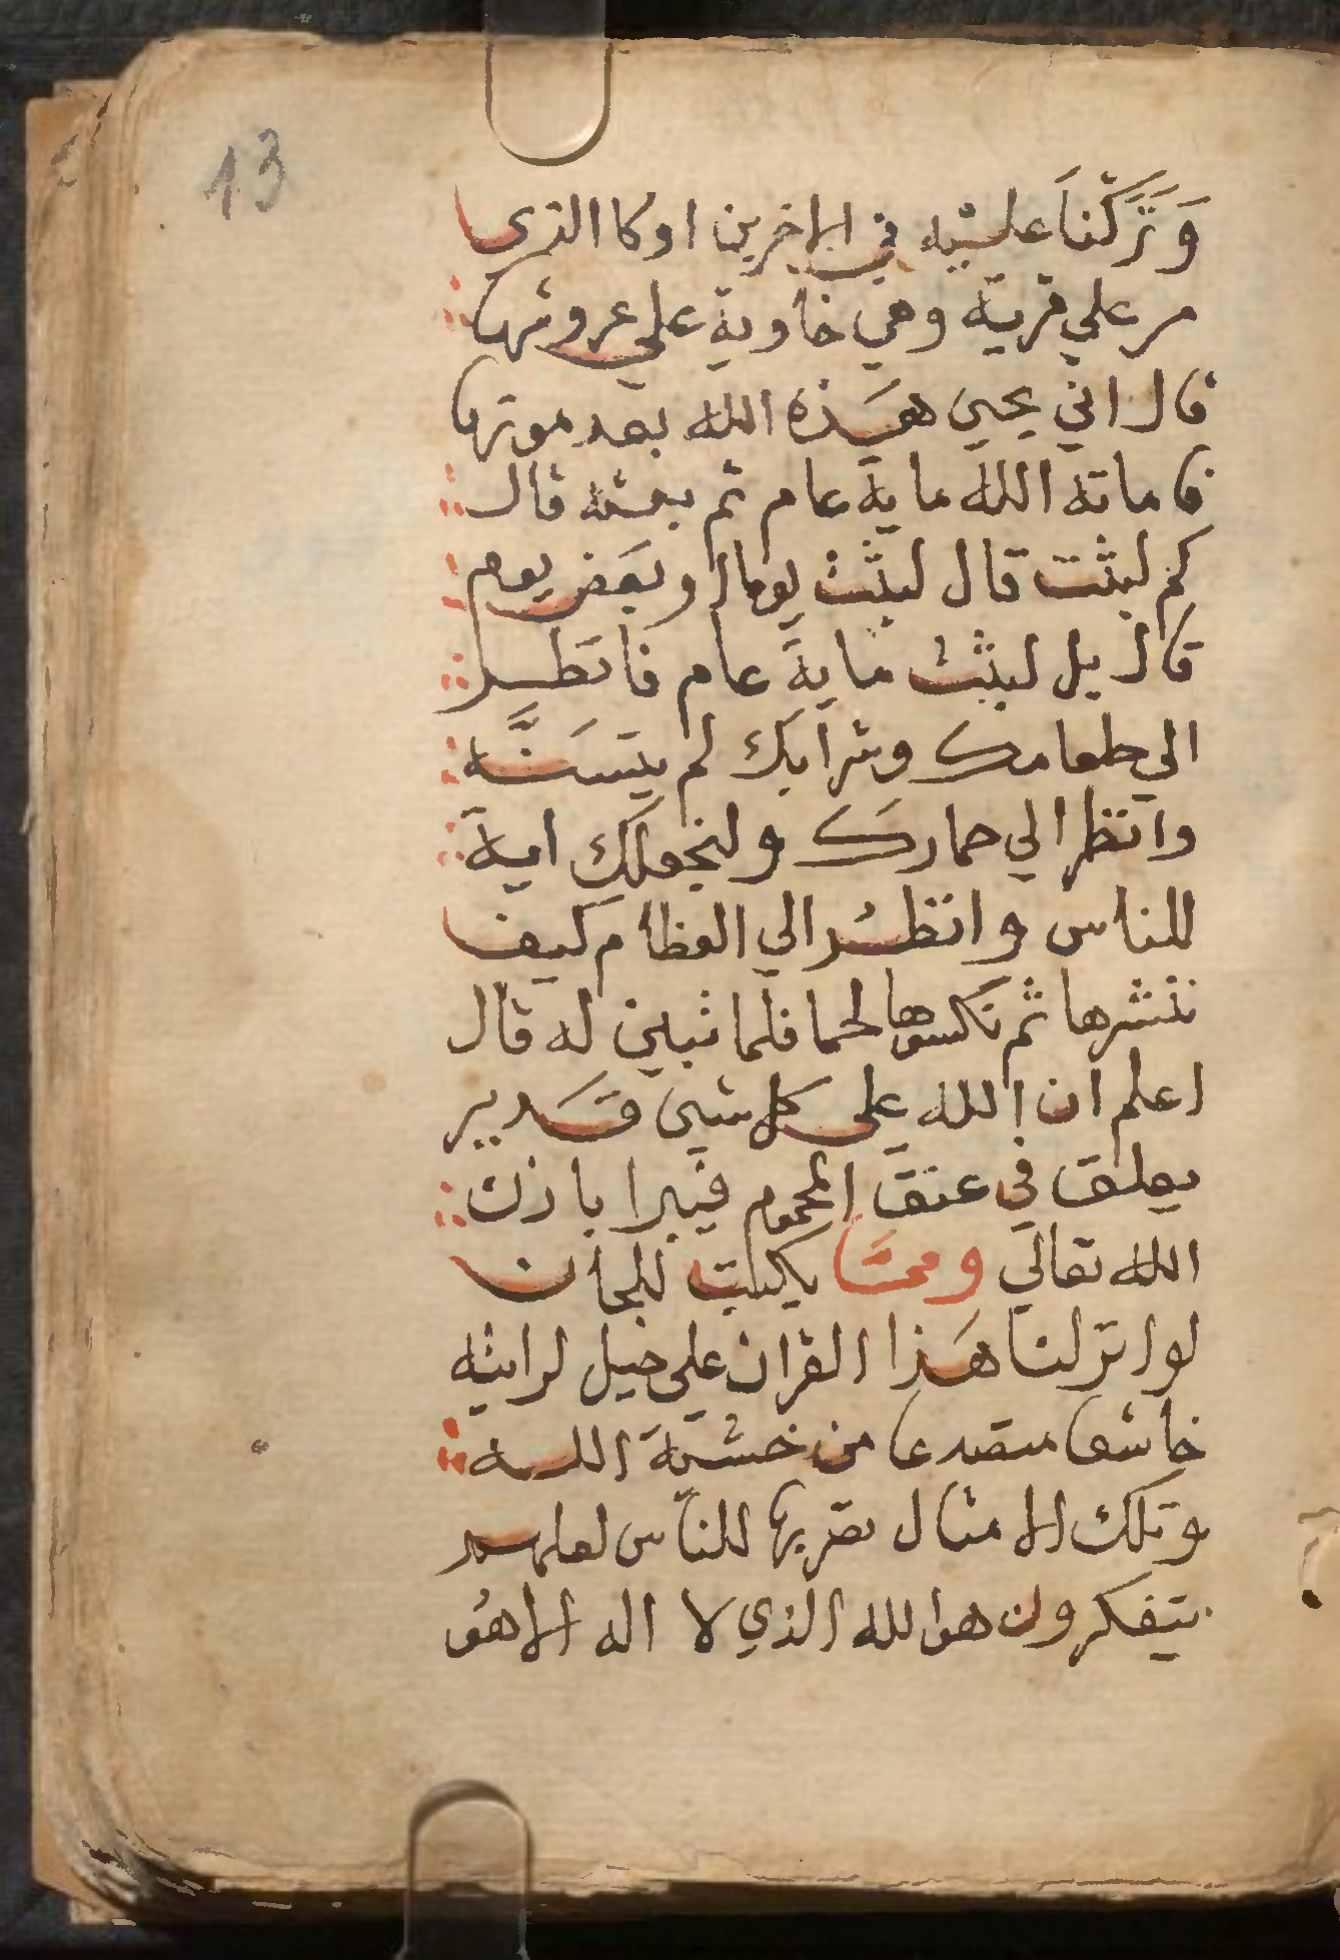 13
وَتَرَكْنَا عليْه في الاخرين اوكا الذي
مر علي قرية وهي خاوية علي عروشها
قال اني يحيي هَذه الله بعد موتها
فاماته الله ماية عام ثم بعثه قال
كم لبثت قال لبثت يوما او بعَض يوم
قال بل لبثت ماية عام فانظر
الي طعامك وشرابك لم يتسَنَّه
وانظر الي حمارك ولنجعلك اية
للناس وانظُر الي العظام كيف
ننشرها ثم نكسوها لحما فلما تبين له قال
اعلم ان الله علي كل شي قَدير
يعلق في عنق المحموم فيبرا باذن
الله تعالي ومما يكتب للجان
لو انزلنا هَذا القران علي جبل لرايته
خاشعا متصدعا من خشية الله
وتلك الامثال نضربها للناس لعلهم
يتفكرون هو الله الذي لا اله الا هُو